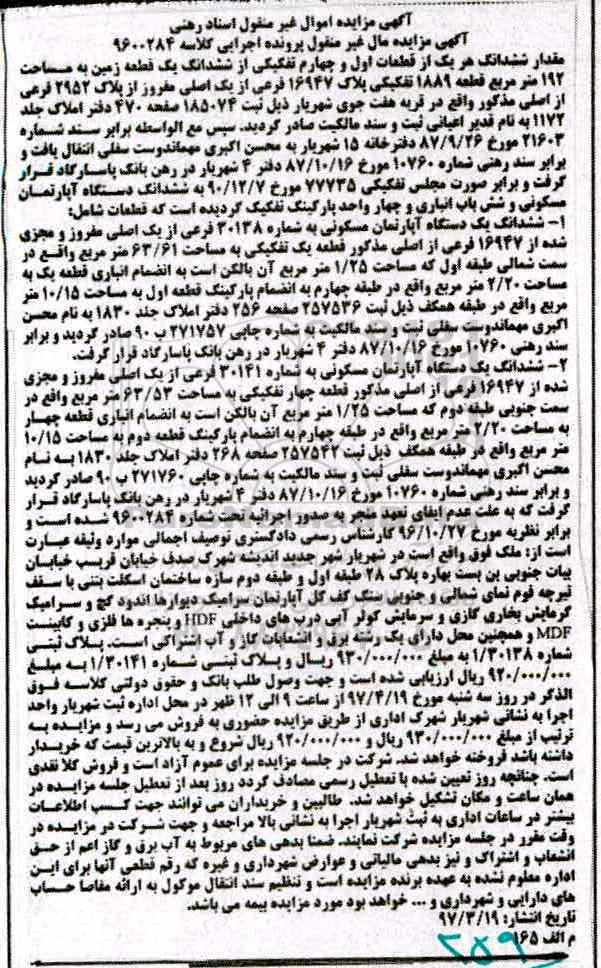 آگهی مزایده اموال غیر منقول اسناد رهنی
آگهی مزایده مال غیر منقول پرونده اجرایی کلاسه ۹۶۰۰۲۸۴
مقدار ششدانگ هر یک از قطعات اول و چهارم تفکیکی از ششدانگ یک قطعه زمین به مساحت
۱۹۲ متر مربع قطعه ۱۸۸۹ تفکیکی پلاک ۱۶۹۴۷ فرعی از یک اصلی مفروز از پلاک ۲۹۵۲ فرعی
از اصلی مذکور واقع در قریه هفت جوی شهریار ذیل ثبت ۱۸۵۰۷۴ صفحه ۴۷۰ دفتر املاک جلد
۱۱۷۲ به نام قدیر اعیانی ثبت و سند مالکیت صادر گردید. سپس مع الواسطه برابر سند شماره
۲۱۶۰۳ ۸۷/۹/۲۶ دفترخانه ۱۵ شهریار به محسن اکبری مهماندوست سفلی انتقال یافت و
برابر سند رهنی شماره ۱۰۷۶۰ مورخ ۸۷/۱۰/۱۶ دفتر ۴ شهریار در رهن بانک پاسارگاد قرار
گرفت و برابر صورت مجلس تفکیکی ۷۷۷۳۵ مورخ ۹۰/۱۲/۷ به ششدانگ دستگاه آپارتمان
مسکونی و شش باب انباری و چهار واحد پارکینگ تفکیک گردیده است که قطعات شامل:
۱- ششدانگ یک دستگاه آپارتمان مسکونی به شماره ۳۰۱۳۸ فرعی از یک اصلی مفروز و مجزی
شده از ۱۶۹۴۷ فرعی از اصلی مذکور قطعه یک تفکیکی به مساحت ۶۳/۶۱ متر مربع واقع در
سمت شمالی طبقه اول که مساحت ۱/۲۵ متر مربع آن بالکن است به انضمام انباری قطعه یک به
مساحت ۲/۲۰ متر مربع واقع در طبقه چهارم به انضمام پارکینگ قطعه اول به مساحت ۱۰/۱۵ متر
مربع واقع در طبقه همکف ذیل ثبت ۲۵۷۵۳۶ صفحه ۲۵۶ دفتر املاک جلد ۱۸۳۰ به نام محسن
اکبری مهماندوست سفلی ثبت و سند مالکیت به شماره چاپی ۲۷۱۷۵۷ ب ۹۰ صادر گردید و برابر
سند رهنی ۱۰۷۶۰ مورخ ۸۷/۱۰/۱۶ دفتر ۴ شهریار در رهن بانک پاسارگاد قرار گرفت.
۲- ششدانگ یک دستگاه آپارتمان مسکونی به شماره ۳۰۱۴۱ فرعی از یک اصلی مفروز و مجزی
شده از ۱۶۹۴۷ فرعی از اصلی مذکور قطعه چهار تفکیکی به مساحت ۶۳/۵۳ متر مربع واقع در
سمت جنوبی طبقه دوم که مساحت ۱/۲۵ متر مربع آن بالکن است به انضمام انباری قطعه چهار
به مساحت ۲/۲۰ متر مربع واقع در طبقه چهارم به انضمام پارکینگ قطعه دوم به مساحت ۱۰/۱۵
متر مربع واقع در طبقه همکف ذیل ثبت ۲۵۷۵۴۲ صفحه ۲۶۸ دفتر املاک جلد ۱۸۳۰ به نام
محسن اکبری مهماندوست سفلی ثبت و سند مالکیت به شماره چاپی ۲۷۱۷۶۰ ب ۹۰ صادر گردید
و برابر سند رهنی شماره ۱۰۷۶۰ مورخ ۸۷/۱۰/۱۶ دفتر ۴ شهریار در رهن بانک پاسارگاد قرار
گرفت که به علت عدم ایفای تعهد منجر به صدور اجرائیه تحت شماره ۹۶۰۰۲۸۴ شده است و
برابر نظریه مورخ ۹۶/۱۰/۲۷ کارشناس رسمی دادگستری توصیف اجمالی موارد وثیقه عبارت
است از: ملک فوق واقع است در شهریار شهر جدید اندیشه شهرک صدف خیابان فریب خیابان
بیات جنوبی بن بست بهاره پلاک ۲۸ طبقه اول و طبقه دوم سازه ساختمان اسکلت بتنی با سقف
تیرچه فوم نمای شمالی و جنوبی سنگ کف کل آپارتمان سرامیک دیوارها اندود گچ و سرامیک
گرمایش بخاری گازی و سرمایش کولر آبی درب های داخلی HDF و پنجره ها فلزی و کابینت
MDF و همچنین محل دارای یک رشته برق و انشعابات گاز و آب اشتراکی است. پلاک ثبتی
شماره ۱/۳۰۱۳۸ به مبلغ ۹۳۰/۰۰۰/۰۰۰ ریال و پلاک ثبتی شماره ۱/۳۰۱۴۱ به مبلغ
۹۲۰/۰۰۰/۰۰۰ ریال ارزیابی شده است و جهت وصول طلب بانک و حقوق دولتی کلاسه فوق
الذکر در روز سه شنبه مورخ ۹۷/۴/۱۹ از ساعت ۹ الی ۱۲ ظهر در محل اداره ثبت شهریار واحد
اجرا به نشانی شهریار شهرک اداری از طریق مزایده حضوری به فروش می رسد و مزایده به
ترتیب از مبلغ ۹۳۰/۰۰۰/۰۰۰ ریال و ۹۲۰/۰۰۰/۰۰۰ ریال شروع و به بالاترین قیمت که خریدار
داشته باشد فروخته خواهد شد. شرکت در جلسه مزایده برای عموم آزاد است و فروش کلا نقدی
است. چنانچه روز تعیین شده با تعطیل رسمی مصادف گردد روز بعد از تعطیل جلسه مزایده در
همان ساعت و مکان تشکیل خواهد شد. طالبین و خریداران می توانند جهت کسب اطلاعات
بیشتر در ساعات اداری به ثبت شهریار اجرا به نشانی بالا مراجعه و جهت شرکت در مزایده در
وقت مقرر در جلسه مزایده شرکت نمایند. ضمنا بدهی های مربوط به آب برق و گاز اعم از حق
انشعاب و اشتراک و نیز بدهی مالیاتی و عوارض شهرداری و غیره که رقم قطعی آنها برای این
اداره معلوم نشده به عهده برنده مزایده است و تنظیم سند انتقال موکول به ارائه مفاصا حساب
های دارایی و شهرداری و ... خواهد بود مورد مزایده بیمه می باشد.
تاریخ انتشار: ۹۷/۳/۱۹
م الف ۱۶۵
۲۵۹